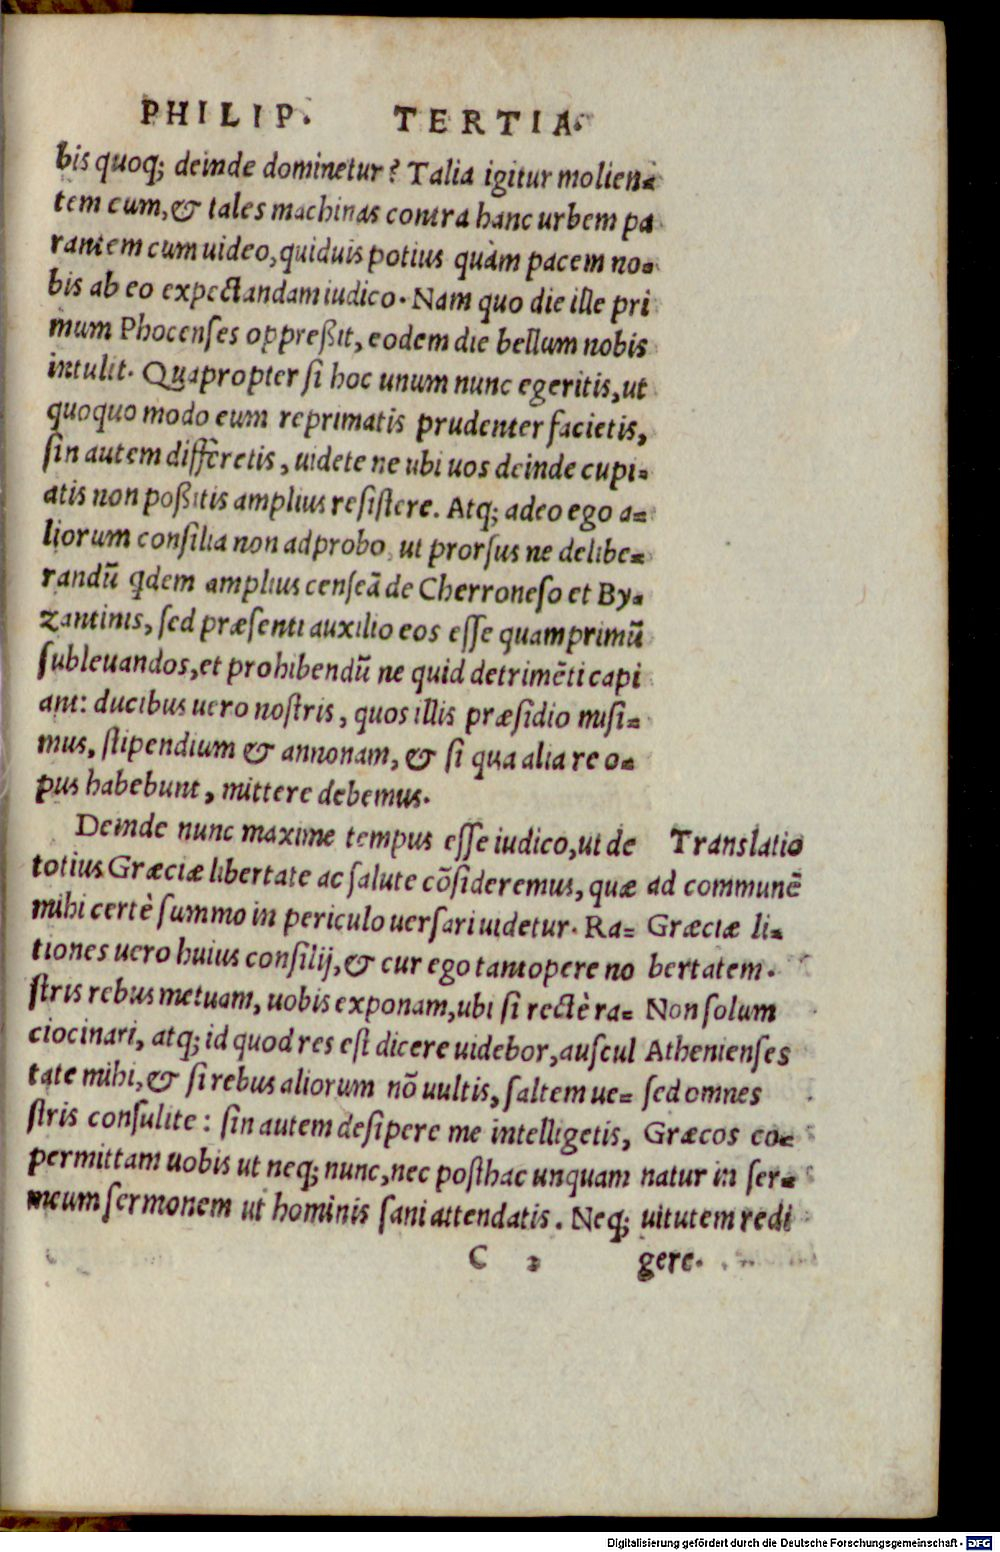 PHILIP. TERTIA.
bis quoq; deinde dominetur? Talia igitur molien=
tem eum, & tales machinas contra hanc urbem pa
rantem cum uideo, quiduis potius quàm pacem no=
bis ab eo expectandam iudico. Nam quo die ille pri
mum Phocenses oppreßit, eodem die bellum nobis
intulit. Quapropter si hoc unum nunc egeritis, ut
quoquo modo eum reprimatis prudenter facietis,
sin autem differetis, uidete ne ubi uos deinde cupi=
atis non poßitis amplius resistere. Atq; adeo ego a=
liorum consilia non adprobo, ut prorsus ne delibe=
randũ qdem amplius censeã de Cherroneso et By=
zantinis, sed præsenti auxilio eos esse quamprimũ
subleuandos, et prohibendũ ne quid detrimẽti capi
ant: ducibus uero nostris, quos illis præsidio misi=
mus, stipendium & annonam, & si qua alia re o=
pus habebunt, mittere debemus.
Deinde nunc maxime tempus esse iudico, ut de
totius Græciæ libertate ac salute cõsideremus, quæ
mihi certè summo in periculo uersari uidetur. Ra=
tiones uero huius consilij, & cur ego tantopere no
stris rebus metuam, uobis exponam, ubi si rectè ra=
ciocinari, atq; id quod res est dicere uidebor, auscul
tate mihi, & si rebus aliorum nõ uultis, saltem ue=
stris consulite: sin autem desipere me intelligetis,
permittam uobis ut neq; nunc, nec posthac unquam
meum sermonem ut hominis sani attendatis. Neq;
Translatio
ad communẽ
Græciæ li=
bertatem.
Non solum
Athenienses
sed omnes
Græcos co=
natur in ser=
uitutem redi
gere.
C 2
Digitalisierung gefördert durch die Deutsche Forschungsgemeinschaft - DFG